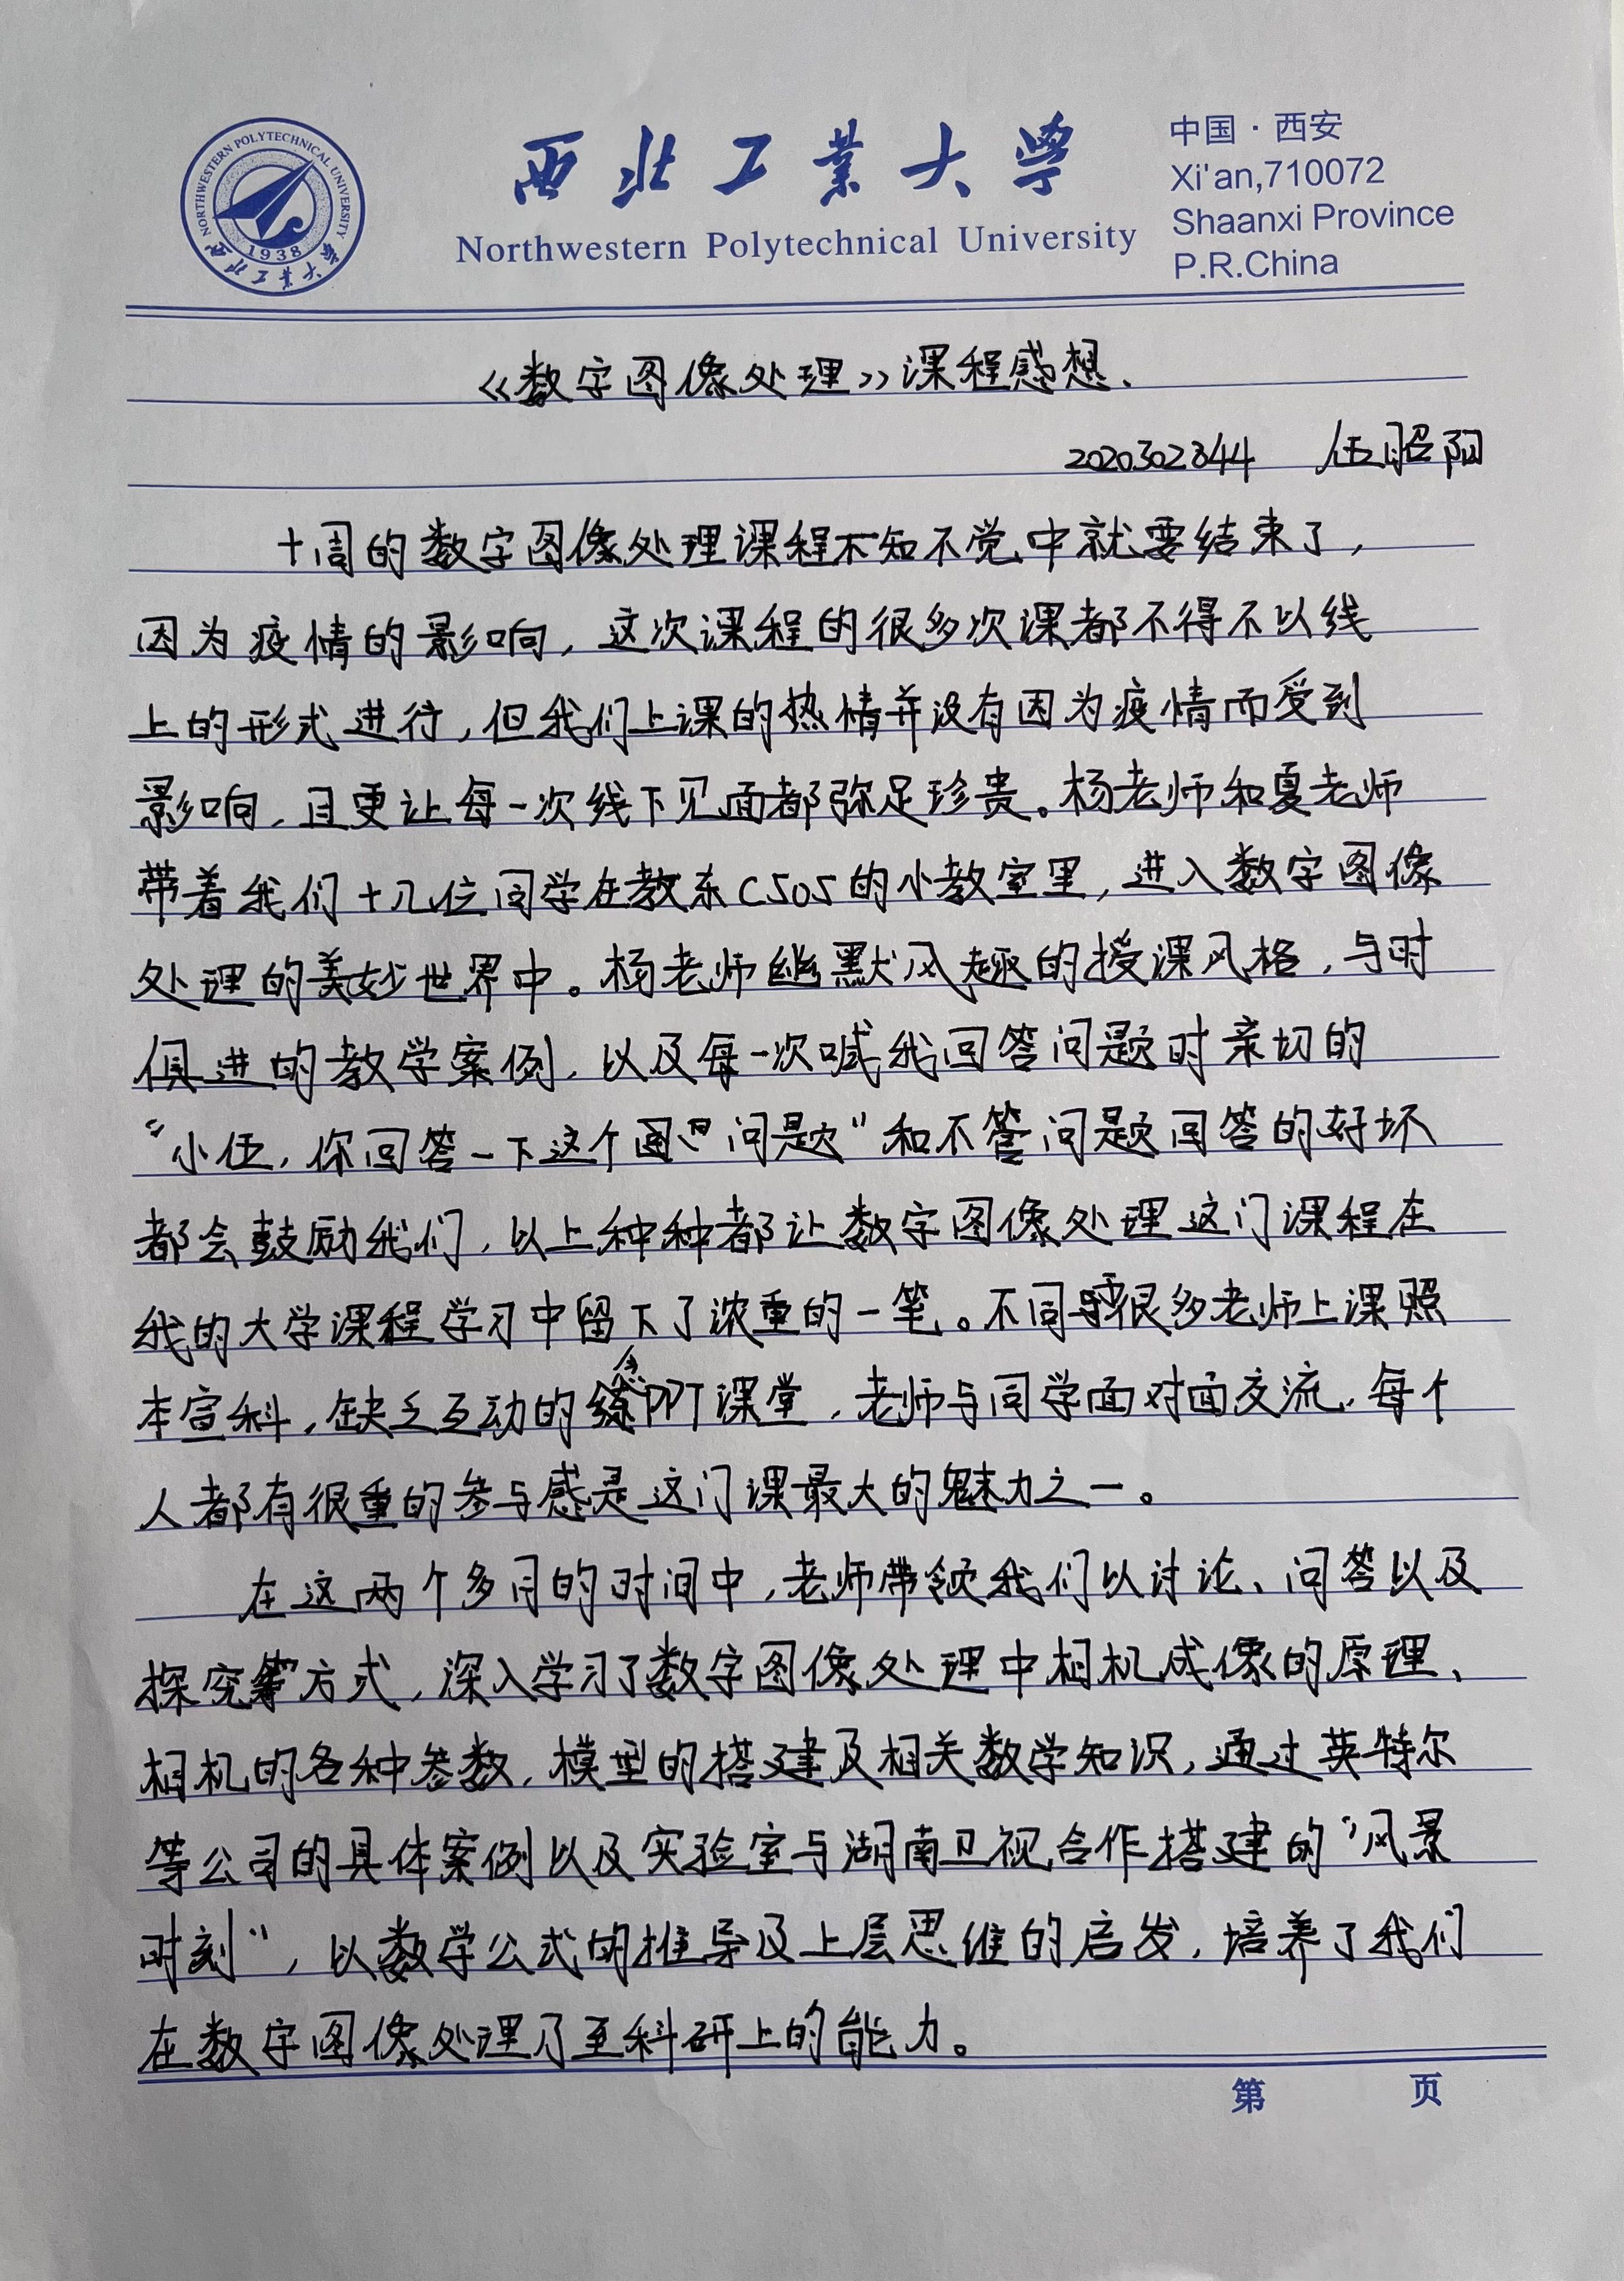 西北工业大学
Northwestern Polytechnical University
中国·西安
Xi'an,710072
Shaanxi Province
P.R.China
NORTHWESTERN POLYTECHNICAL UNIVERSITY
1938
西北工业大学
《数字图像处理》课程感想、
2020302344 伍昭阳
十周的数字图像处理课程不知不觉中就要结束了，
因为疫情的影响，这次课程的很多次课都不得不以线
上的形式进行，但我们上课的热情并没有因为疫情而受到
影响，且更让每一次线下见面都弥足珍贵。杨老师和夏老师
带着我们十几位同学在教东C505的小教室里，进入数字图像
处理的美妙世界中。杨老师幽默风趣的授课风格，与时
俱进的教学案例，以及每一次喊我回答问题时亲切的
“小伍，你回答一下这个问题”和不管问题回答的好坏
都会鼓励我们，以上种种都让数字图像处理这门课程在
我的大学课程学习中留下了浓重的一笔。不同很多老师上课照
本宣科，缺乏互动的念PPT课堂，老师与同学面对面交流，每个
人都有很重的参与感是这门课最大的魅力之一。
在这两个多月的时间中，老师带领我们以讨论、问答以及
探究等方式，深入学习了数字图像处理中相机成像的原理、
相机的各种参数，模型的搭建及相关数学知识，通过英特尔
等公司的具体案例以及实验室与湖南卫视合作搭建的“风景
时刻”，以数学公式的推导及上层思维的启发，培养了我们
在数字图像处理乃至科研上的能力。
第 页